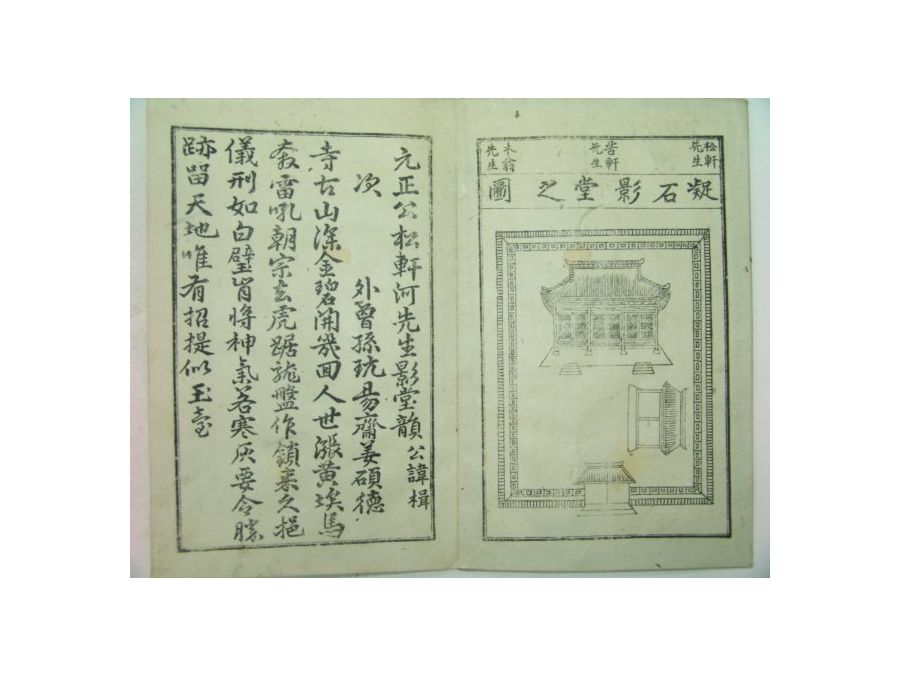 松軒先生
苦軒先生
木翁先生
凝石影堂之圖
元正公松軒河先生影堂韻 公諱楫
次 外曾孫玩易齋姜碩德
寺古山深金碧開幾回人世漲黃埃馬
雷吼朝宗去虎踞龍盤作鎮來久挹
儀刑如白璧肯將神氣若寒灰要令勝
跡留天地唯有招提似玉臺